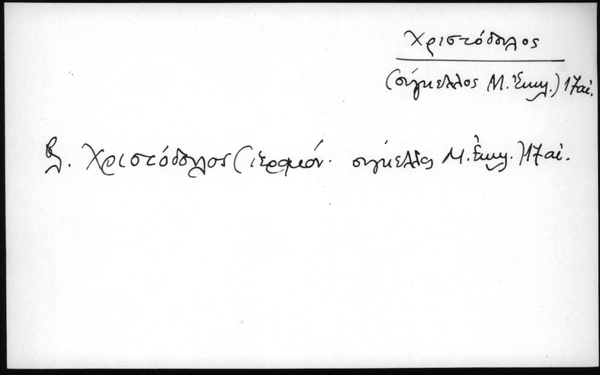 Χριστόδουλος
(σύγκελλος Μ. Ἐκκλ.) 17 αἰ.
Βλ. Χριστόδουλος (ἱερομόν. σύγκελλος Μ. Ἐκκλ.) 17 αἰ.